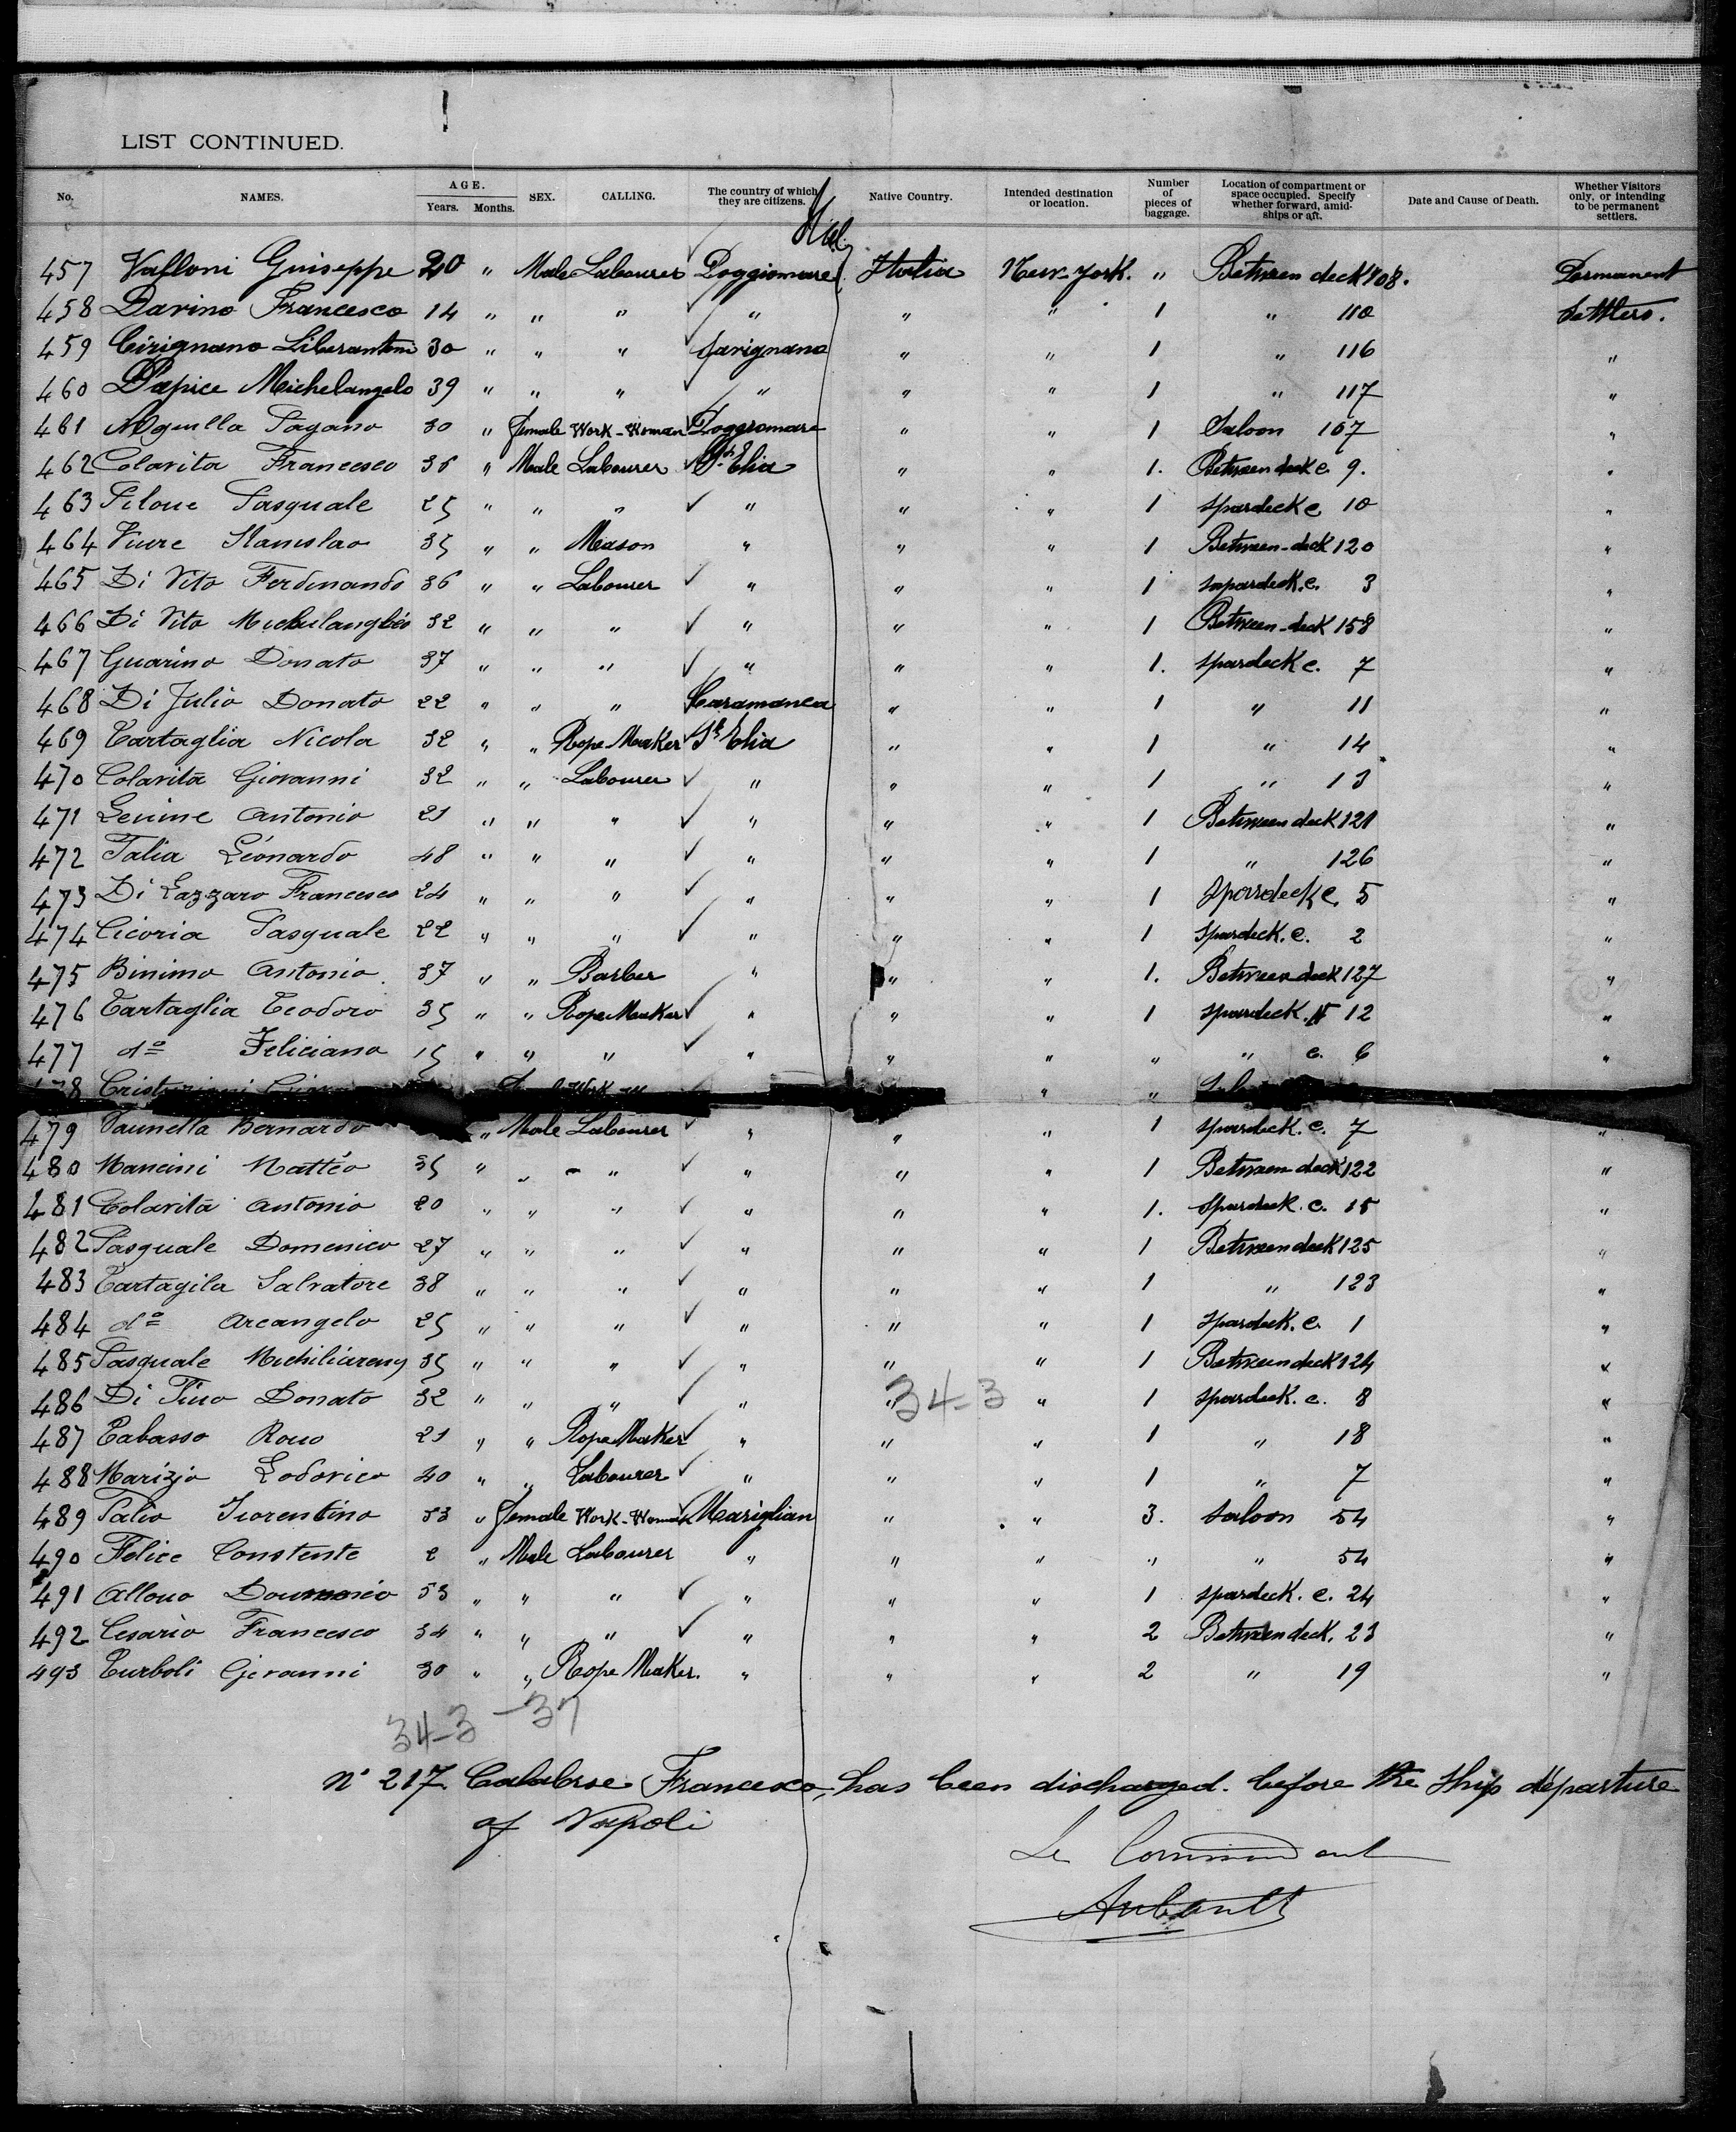 LIST CONTINUED.
No. NAMES. AGE. Years. Months. SEX. CALLING. The country of which they are citizens. Native Country. Intended destination or location. Number of pieces of baggage. Location of compartment or space occupied. Specify whether forward, amidships or aft. Date and Cause of Death. Whether Visitors only, or intending to be permanent settlers.
457 Guiseppe 20 " Male Labourer Poggiomare Italia New-York. " Between deck 108. Permanent
458 Davino Francesco 14 " " " " " " 1 " 110 Settlers.
459 Cirignano 30 " " " Savignano " " 1 " 116 "
460 Papice Michelangelo 39 " " " " " " 1 " 117 "
461 Pagano 30 " female Work-Woman Poggiomare " " 1 Saloon 167 "
462 Colavita Francesco 36 " Male Labourer St Elia " " 1. Between deck c. 9. "
463 Pilone Pasquale 25 " " " " " " 1 spardeck c. 10 "
464 Stanislao 35 " " Mason " " " 1 Between-deck 120 "
465 Di Vito Ferdinando 36 " " Labourer " " " 1 spardeck. c. 3 "
466 Di Vito 32 " " " " " " 1 Between-deck 158 "
467 Guarino Donato 37 " " " " " " 1. spardeck c. 7 "
468 Di Julio Donato 22 " " " Caramanca " " 1 " 11 "
469 Tartaglia Nicola 32 " " Rope Maker St Elia " " 1 " 14 "
470 Colavita Giovanni 32 " " Labourer " " " 1 " 13 "
471 Antonio 21 " " " " " " 1 Between deck 121 "
472 Talia Léonardo 48 " " " " " " 1 " 126 "
473 Di Lazzaro Francesco 24 " " " " " " 1 Spardeck c. 5 "
474 Cicoria Pasquale 22 " " " " " " 1 Spardeck. c. 2 "
475 Binimo Antonio 37 " " Barber " " " 1. Between deck 127 "
476 Tartaglia Teodoro 35 " " Rope Maker " " " 1 spardeck. 12 "
477 do Feliciano 15 " " " " " " " " c. 6 "
479 Bernardo " Male Labourer " " " 1 spardeck. c. 7 "
480 Mancini Mattéo 35 " " " " " " 1 Between deck 122 "
481 Colavita Antonio 20 " " " " " " 1. Spardeck. c. 15 "
482 Pasquale Domenico 27 " " " " " " 1 Between deck 125 "
483 Tartagila Salvatore 38 " " " " " " 1 " 123 "
484 do Arcangelo 25 " " " " " " 1 Spardeck. c. 1 "
485 Pasquale 35 " " " " " " 1 Between deck 124 "
486 Di Donato 32 " " " " " 34-3 " 1 spardeck. c. 8 "
487 Tabasso 21 " " Rope Maker " " " 1 " 18 "
488 Lodovico 40 " " Labourer " " " 1 " 7 "
489 Talio Fiorentino 33 " female Work-Woman Mariglian " " 3. saloon 54 "
490 Felice Constente 2 " Male Labourer " " " " " 54 "
491 53 " " " " " " 1 spardeck. c. 24 "
492 Cesario Francesco 34 " " " " " " 2 Between deck. 23 "
493 Turboli Giovanni 30 " " Rope Maker. " " " 2 " 19 "
34-3 -37
n° 217. Calabrse Francesco, has been discharged. before the ship departure
of Napoli
Le Commandant